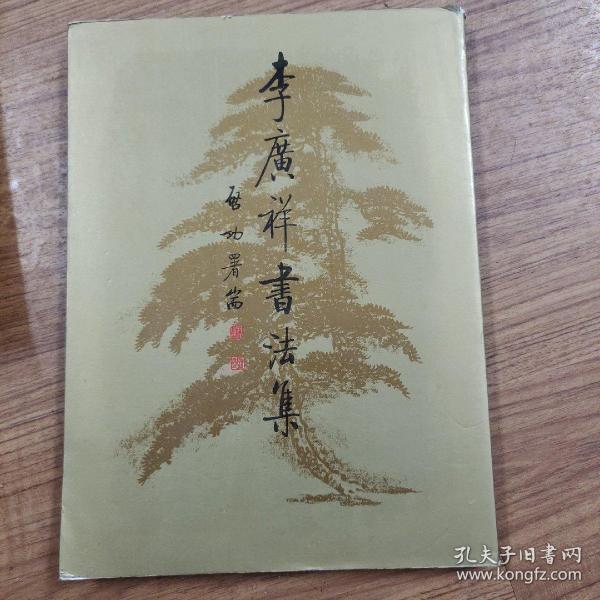 李廣祥書法集
啓功署耑
孔夫子旧書网
www.kongfz.com